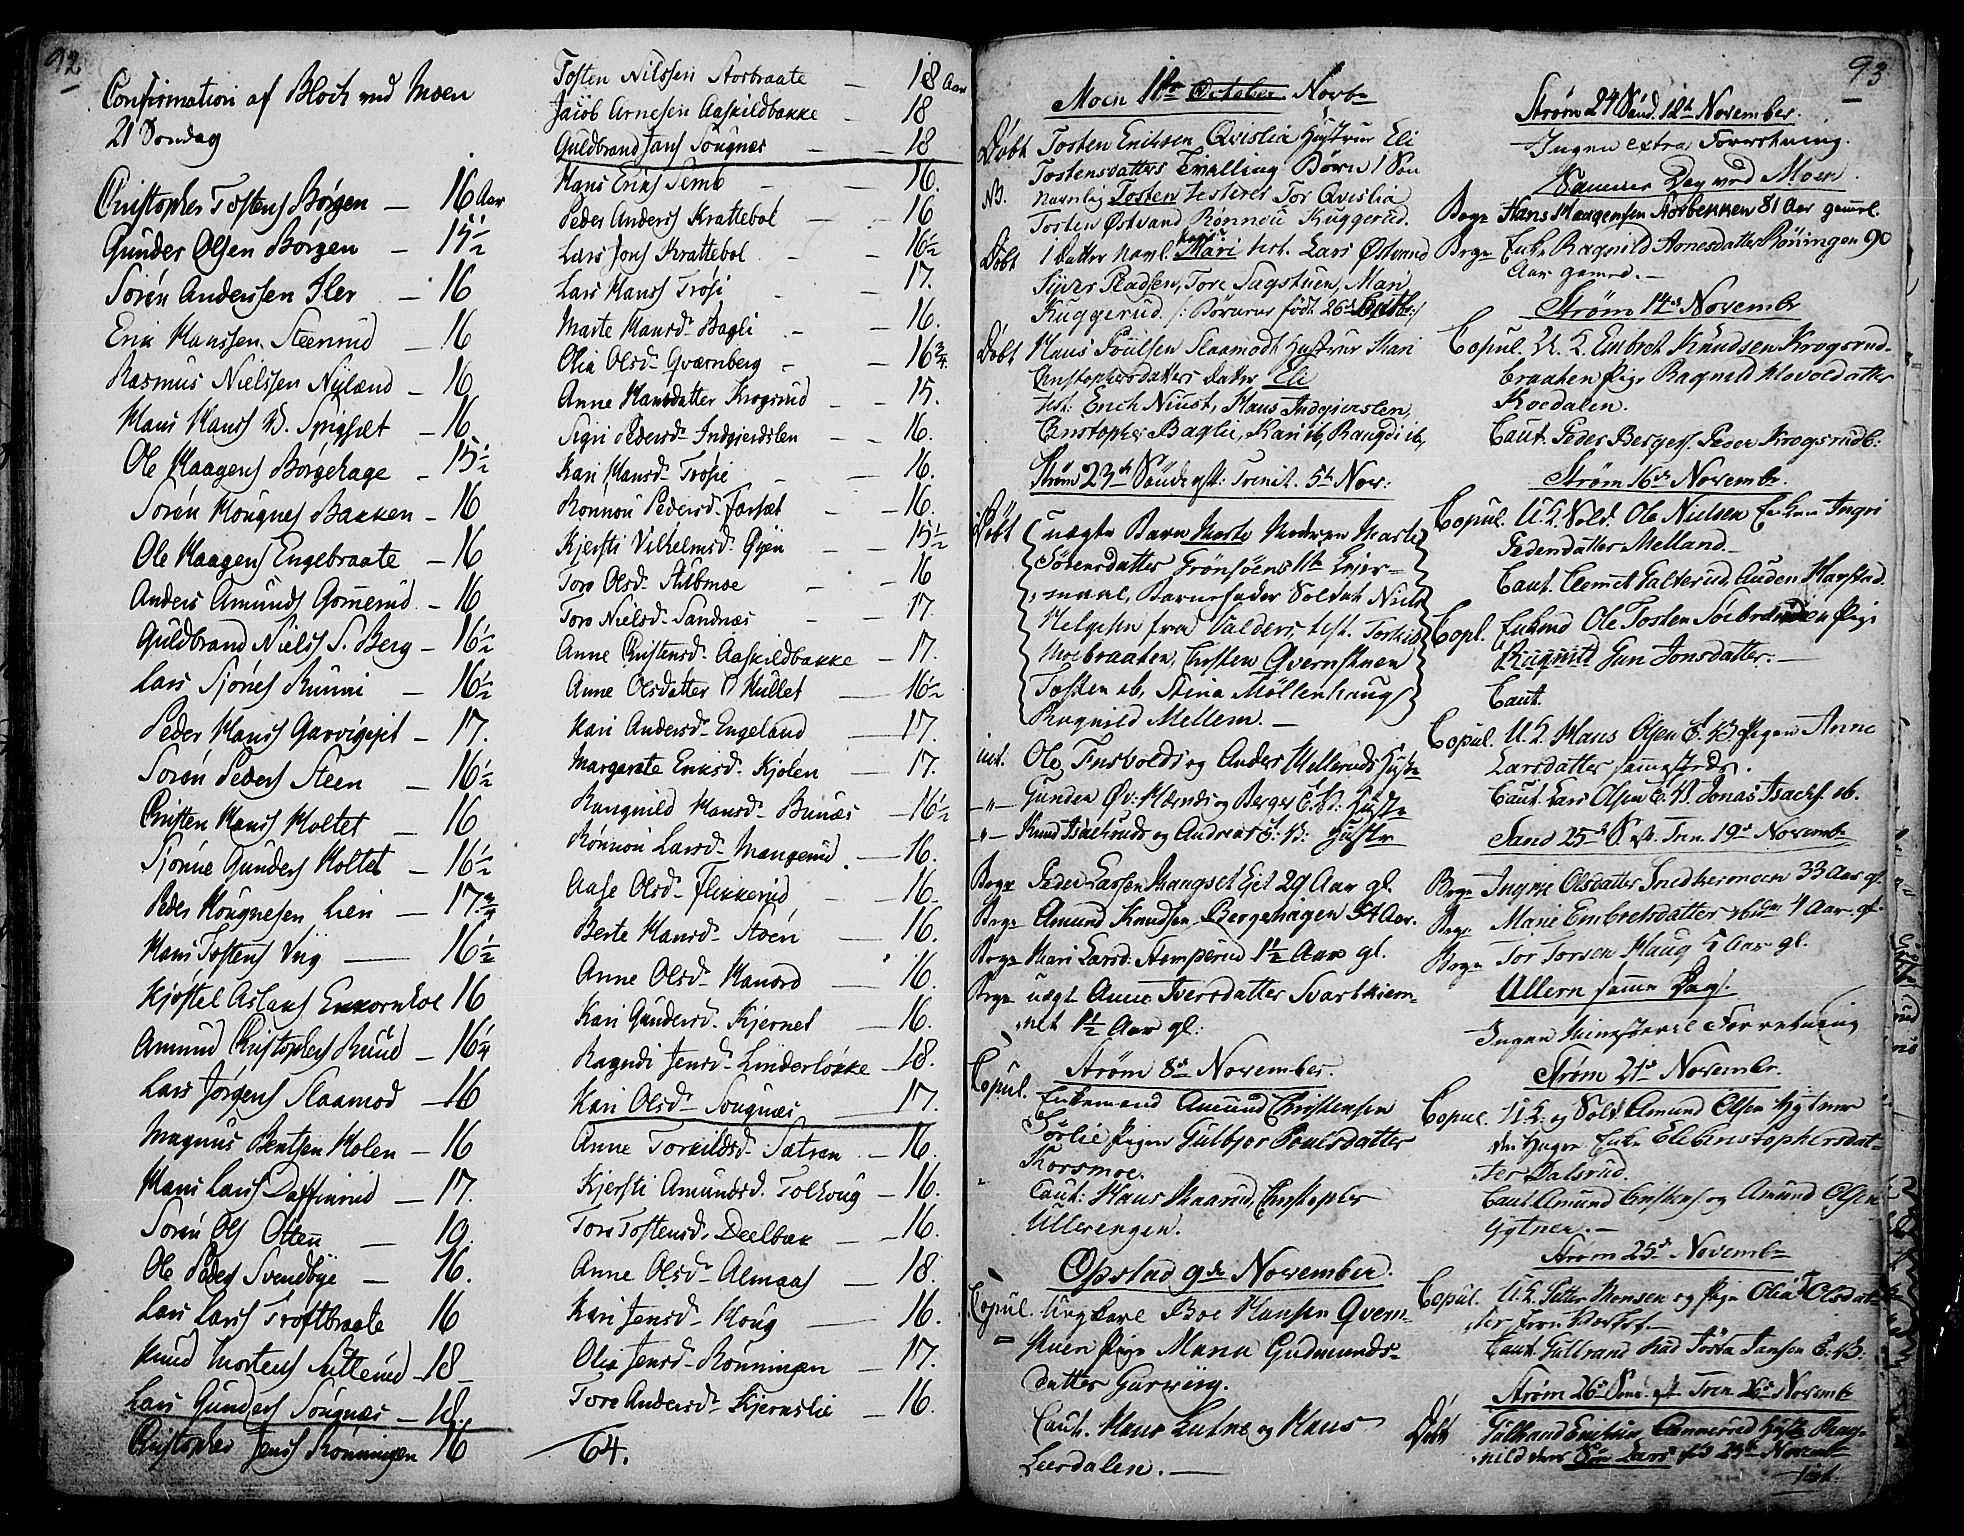 92
Confirmation af Bloch ved Moen
21 Søndag
Christopher Tostens Børgen — 16 Aar
Gunder Olsen Børgen — 15½
Sørèn Anderssen Iler — 16
Erik Hanssen Steenrud — 16
Rasmus Nielssen Nÿlænd — 16
Hans Hanss B. Spigset — 16
Ole Haagens Børgehage — 15½
Sørèn Hougnes Bakken — 16
Ole Haagens Engebraate — 16
Anders Amunds Gomerud — 16
Guldbrand Niels S. Berg — 16½
Lars Siónes Rünni — 16½
Peder Hanss Garvigeiet — 17.
Sørèn Peders Steen — 16½
Christen Hans Holtet — 16
Siónne Gunders Holtet — 16½
Peder Hougnesen Lien — 17¾
Hans Tostens Viig — 16½
Kjøstel Aslaks Enkornhoe 16
Amund Christophers Ruud — 16¼
Lars Jørgens Slaamod — 16
Magnus Bentsen Holen — 16
Hans Lars Daffinrud — 17.
Sørèn Ols Otten — 19.
Ole Peders Svendbÿe — 16.
Lars Lars Trøftbraate 16
Knud Mortens Sitterud — 18
Lars Gunders Songnæs — 18
Christopher Jens Rønningen 16
Tosten Nilssen Storbraate — 18 Aar
Jacob Arnesen Aaskildbakke — 18
Guldbrand Jans Sougnæs — 18
Hans Eriks Semb — 16.
Peder Anderss Krattebøl — 16
Lars Jons Krattebøl — 16½
Lars Hanss Trøsi — 17.
Marte Hansd. Bagli — 16.
Olia Olsd. Qværnberg — 16¾
Anne Hansdatter Krogsrud — 15.
Sigri Pedersd. Indgierdslen — 16.
Kari Hansd. Trøsie — 16.
Rønnou Pedersd. Farsæt — 16.
Kjersti Vilhelmsd. Øÿen — 15½
Tore Olsd. Stubmoe — 16
Tore Nielsd. Sandnæs — 17.
Anne Christensd. Aaskildbakke — 17.
Anne Olsdatter Hullet — 16½
Kari Andersd. Engeland — 17.
Margarete Eriksd. Kjølen — 17.
Rangnild Hansd. Bunæs — 16½
Rønnou Larsd. Mangerud — 16.
Aase Olsd. Flikkerud — 16.
Berte Hansd. Støen — 16.
Anne Olsd. Hanord — 16.
Kari Gundersd. Kjernet — 16.
Ragndi Jensd. Linderløkke — 18.
Kari Olsd. Sougnæs — 17.
Anne Torkildsd. Sætran — 16.
Kjersti Amundsd. Tolhoug — 16.
Tore Tostensd. Deelbæk — 16.
Anne Olsd. Almaas — 18.
Kari Jensd. Houg — 16.
Olia Jensd. Rønningen — 17.
Tore Andersd. Kjernslie — 16.
64.
93
Moen 1ste October Novbr
Døbt Tosten Eriksen Qvislia Hustrue Eli
Tostensdatters Tvilling Børn 1 Søn
NB. navnlig Tosten testeres Tor Qvislia
Tosten Østvand Rønnou Kuggerud.
Døbt 1 datter navnl. Mari test. Lars Østvand
Siver Pladsen, Tore Sagstuen, Mari
Kuggerud. /: Børnene født 26de :/
Døbt Hans Poulsen Slaamodt Hustrue Mari
Christophersdatters datter Eli
test: Erich Niust, Hans Indgierslen,
Christopher Baglie, Kari ib, Raugdi ib,
Strøm 23de Sønd. eft: Trenit. 5te Nov:
Døbt uægte Barn Marte Moderen Marte
Sørensdatter Grønsøens 1te Leier-
maal, Barnefader Soldat Niels
Helgesen fra Valders, test. Torkil
Moebraaten, Christen Qvernstuen
Tosten ib, Stina Möllerhaug
Ragnild Mellem. —
int. Ole Fusvolds og Anders Melleruds Hustr
—"— Gunder Øv: Hernæs og Berger E: B: Hustr
"— Knud Isachruds og Andreas E: B: Hustr
Begr Peder Larsen Haugset Eiet 29 Aar gl.
Begr Amund Knudsen Bergehagen 54 Aar.
Begr Mari Larsd: Stomperud 1½ Aar gl.
Begr uægt Anne Iversdatter Svartkiern-
net 1½ Aar gl:
Strøm 8de November.
Copul. Enkemand Amund Christensen
Sørlie Pigen Gulbjor Poulsdatter
Thorsmoe.
Caut: Hans Skaarud, Christopher
Ullerengen.
Opstad 9de November.
Copul. Ungkarl Boe Hansen Qvern-
stuen Pige Maria Gudmunds-
datter Garvig.
Caut. Hans Lutne og Hans
Leerdalen. —
Strøm 24 Sønd. 12te November.
Ingen extra Forretning.
Samme Dag ved Moen.
Begr Hans Haagensen Storbekken 81 Aar gaml.
Begr Enke Ragnild Arnesdatter Røningen 90
Aar gamel. —
Strøm 14de Novembr
Copul. U. K. Embret Knudsen Krogsrud-
braaten Pige Ragnild Hovoldatter
Roedalen.
Caut. Peder Bergers. Peder Krogsrudb:
Strøm 16de Novembr.
Copul. U. K. Sold. Ole Nielsen Enken Ingri
Pedersdatter Melland. —
Caut. Clemet Galterud, Auden Harstad.
Copl. Enkmd Ole Tosten Pige
Ragnild Gun Jonsdatter. —
Caut.
Copul. U. K. Hans Olsen E. B. Pigen Anne
Larsdatter sammesteds.
Caut. Lars Olsen E. B. Jonas Isachs. ib.
Sand 25de S. eft. Tren. 19de Novembr
Begr Ingrie Olsdatter Snedkermoen 33 Aar gl.
Begr Marie Embretsdatter ibidem 4 Aar gl.
Begr Tor Torsen Haug 5 Aar gl.
Ullern samme Dag.
Ingen Ministeriel Forretning
Strøm 21de Novembr.
Copul. U. K. og Sold. Amund Olsen Gytnee
Enke Eli Christophersdat-
ter Dalsrud.
Caut. Amund Christens og Amund Olsen
Gytnee. —
Strøm 25de Novembr
Copul. U. K. Petter Monsen og Pige Olia Olsdat-
ter
Caut. Gulbrand Rad Tosten Jansen E. B.
Strøm 26de Sønd. eft Tren. 26de Novembr
Døbt Gulbrand Ericksen Cammerud Hustr Rag-
nild deres Søn Lars fød 23de Novembr
test.